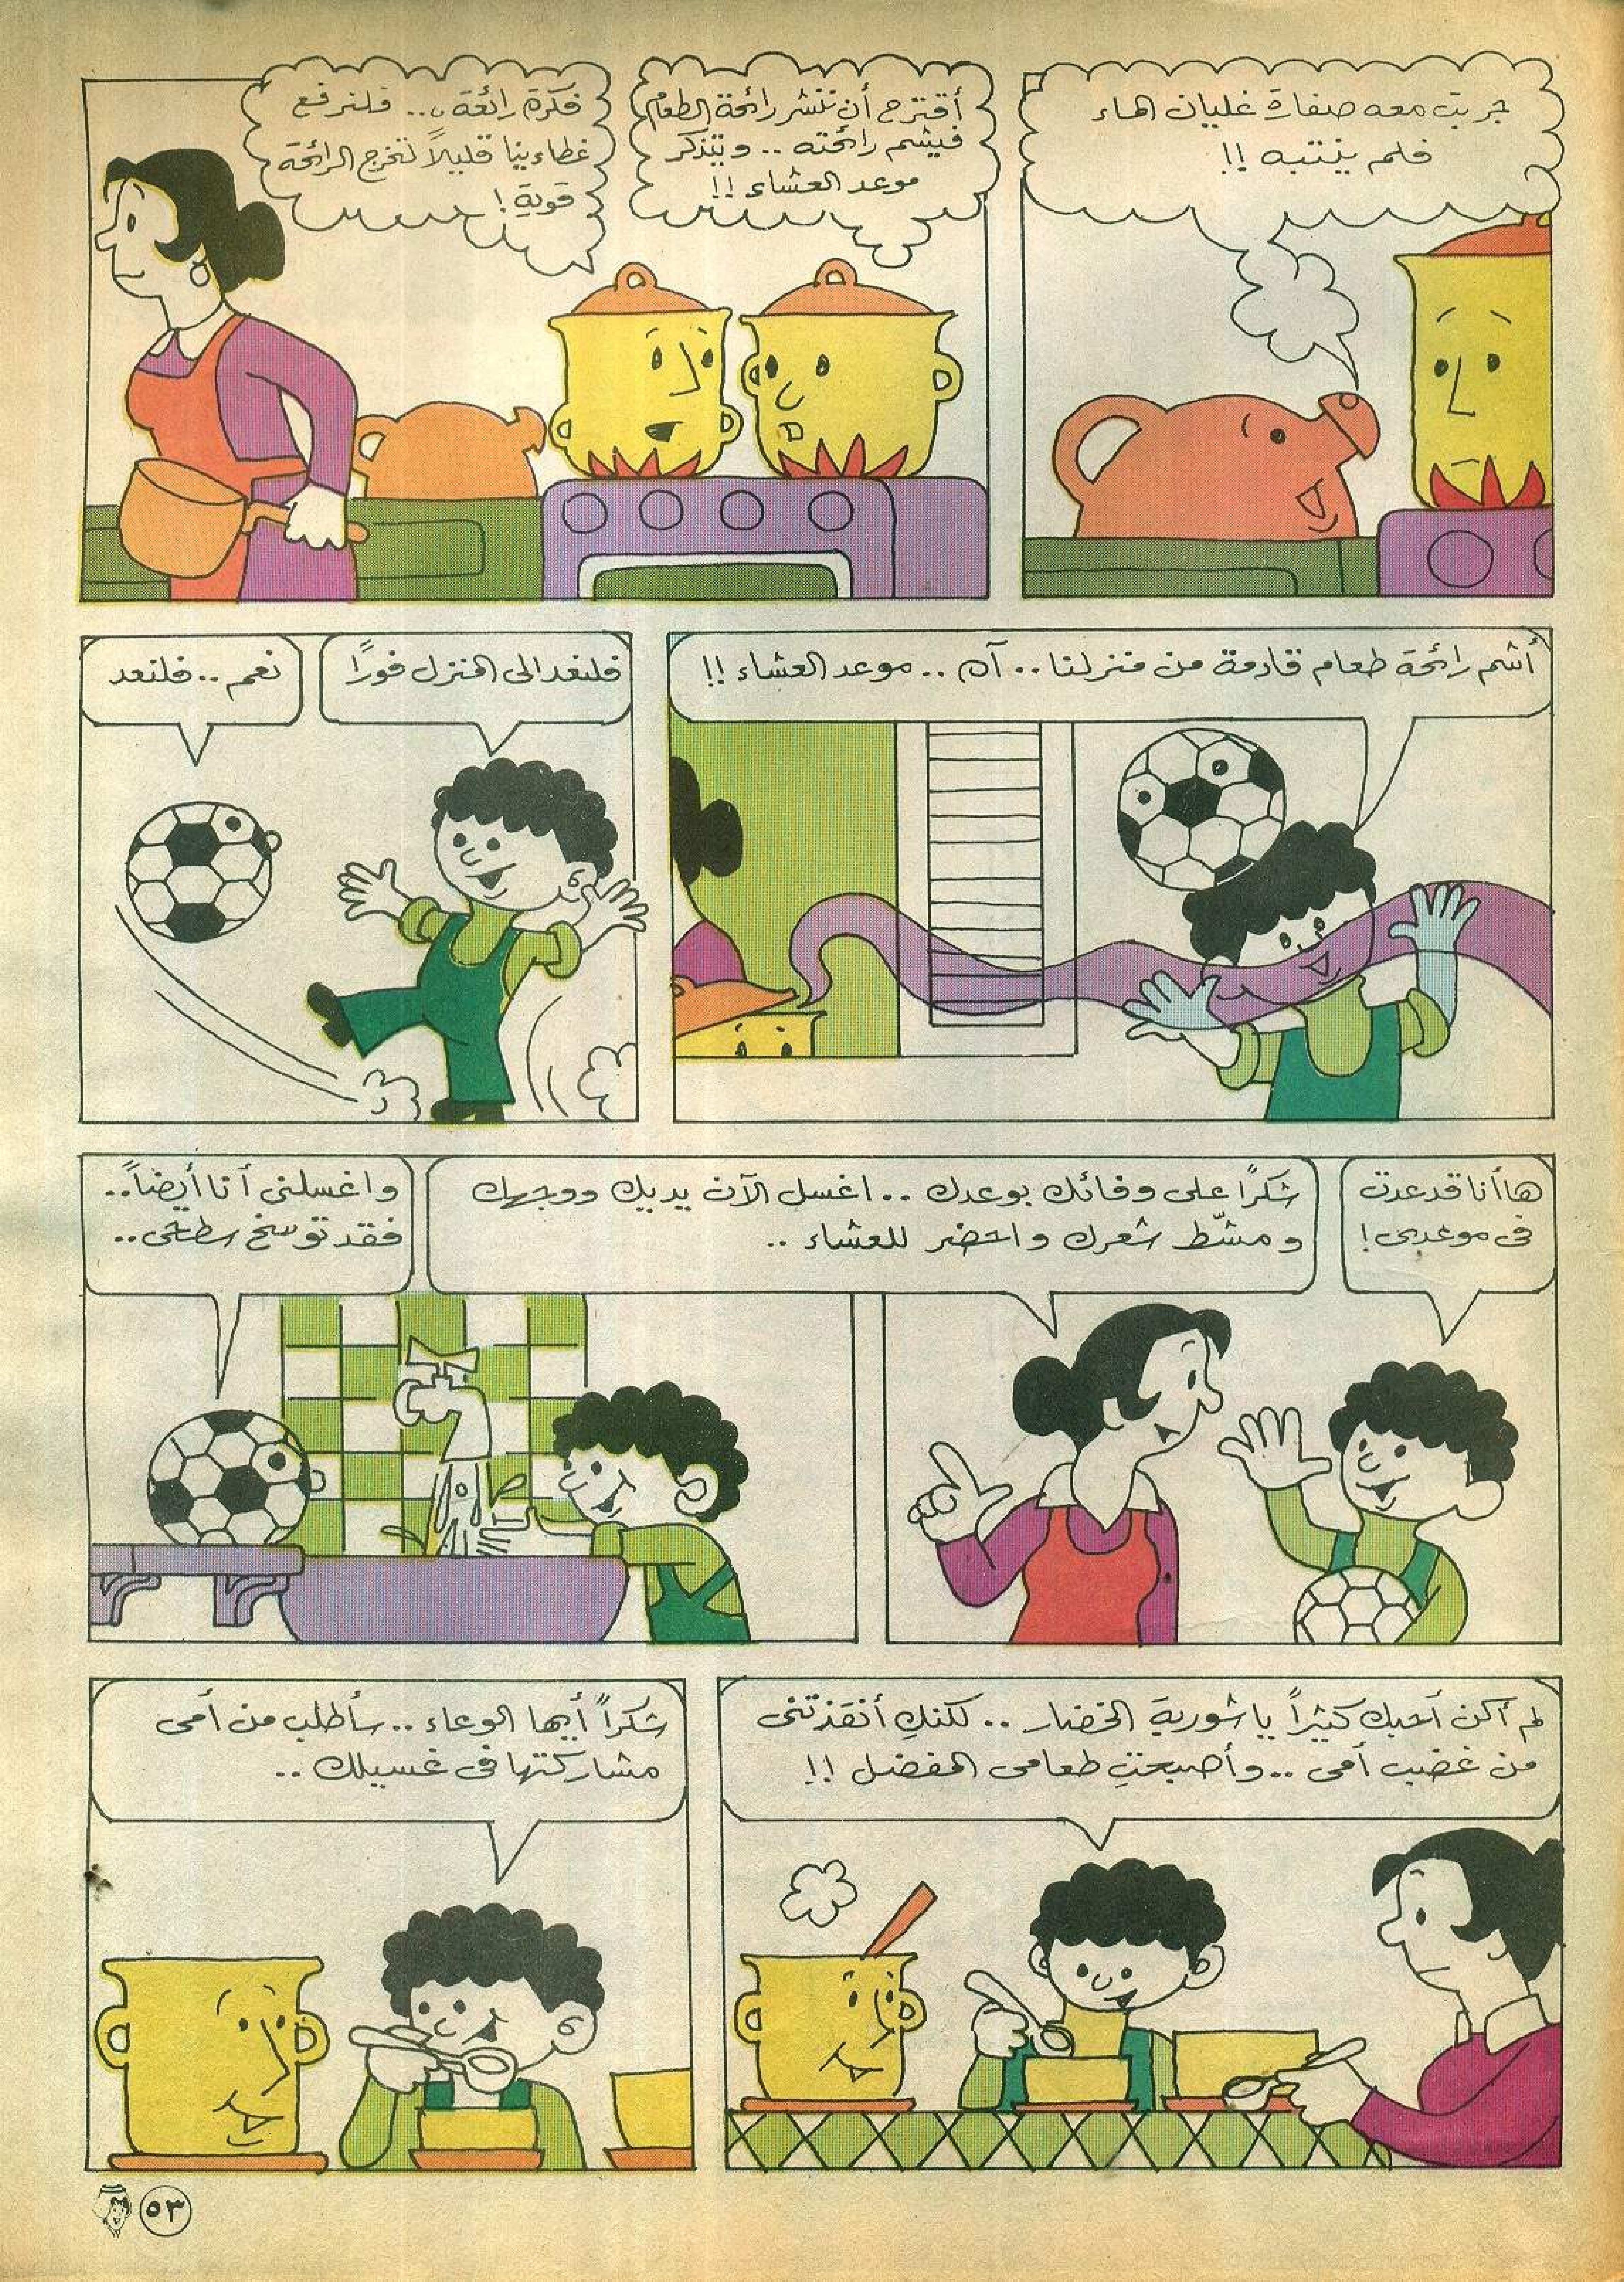 جربت معه صفارة غليان الماء
فلم ينتبه !!
أقترح أن ننشر رائحة الطعام
فيشم رائحته .. ويتذكر
موعد العشاء !!
فكرة رائعة ... فلنرفع
غطاءينا قليلاً لتخرج الرائحة
قوية !
أشم رائحة طعام قادمة من منزلنا .. آه .. موعد العشاء !!
فلنعد الى المنزل فورًا
نعم .. فلنعد
ها أنا قد عدت
فى موعدى !
شكرًا على وفائك بوعدك .. اغسل الآن يديك ووجهك
ومشّط شعرك واحضر للعشاء ..
واغسلنى أنا أيضاً ..
فقد توسخ سطحى ..
لم أكن أحبك كثيراً يا شوربة الخضار .. لكنكِ أنقذتنى
من غضب أمى .. وأصبحتِ طعامى المفضل !!
شكراً أيها الوعاء .. سأطلب من أمى
مشاركتها فى غسيلك ..
٥٣